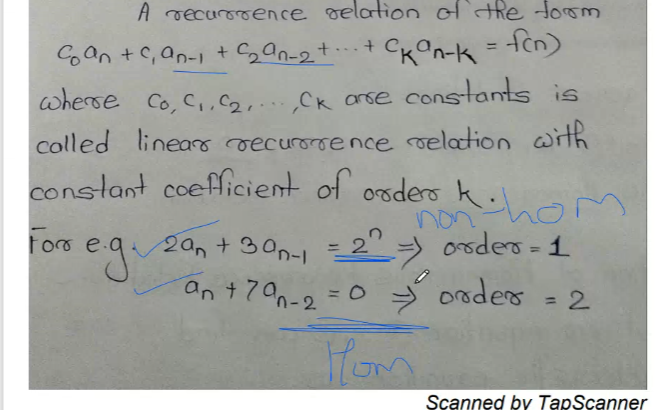 A recurrence relation of the form
C₀aₙ + C₁aₙ₋₁ + C₂aₙ₋₂ + ... + Cₖaₙ₋ₖ = f(n)
where C₀, C₁, C₂, ..., Cₖ are constants is
called linear recurrence relation with
constant coefficient of order k.
non-hom
For e.g. 2aₙ + 3aₙ₋₁ = 2ⁿ ⇒ order = 1
aₙ + 7aₙ₋₂ = 0 ⇒ order = 2
Hom
Scanned by TapScanner